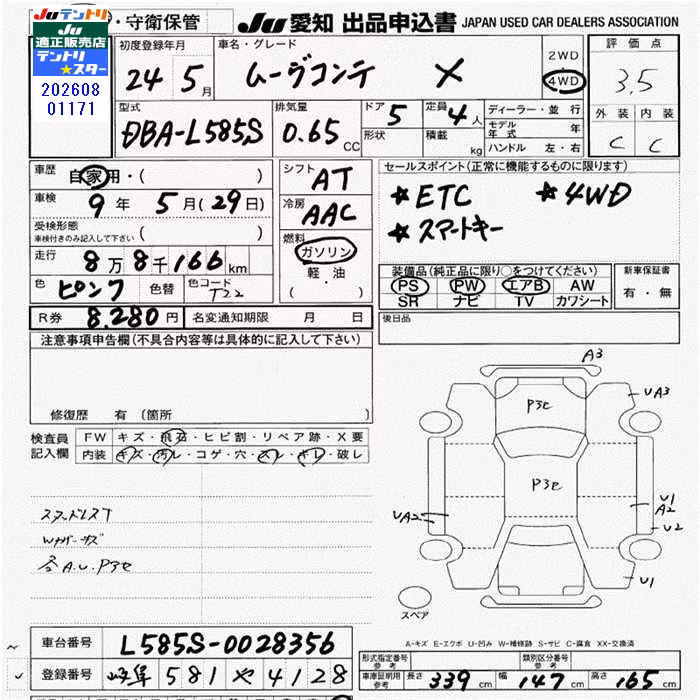 JUテントリ ・守衛保管 JU 愛知 出品申込書 JAPAN USED CAR DEALERS ASSOCIATION
JU 適正販売店 テントリ★スター
202608
01171
初度登録年月 車名・グレード 2WD 4WD 評価点
24年5月 ムーヴコンテ X 3.5
外装 内装
C C
型式 排気量 ドア 定員 ディーラー・並行
DBA-L585S 0.65CC 5 4人 モデル年式 年
形状 積載 kg ハンドル 左・右
車歴 自家用・( )
車検 9年5月(29日)
受検形態 車検付きのみ記入して下さい ( )
走行 8万8千166km
色 ピンク 色替 色コード T22
R券 8.280円 名変通知期限 月 日
シフト AT
冷房 AAC
燃料 ガソリン
軽・油
( )
セールスポイント(正常に機能するものに限ります)
★ETC ★4WD
★スマートキー
装備品(純正品に限り○をつけてください) 新車保証書
PS PW エアB AW 有・無
SR ナビ TV カワシート
後日品
注意事項申告欄(不具合内容等は具体的に記入して下さい)
修復歴 有 〔箇所 〕
検査員記入欄 FW キズ・飛石・ヒビ割・リペア跡・X要
内装 キズ・汚レ・コゲ・穴・スレ・キレ・破し
A3
P3e UA3
P3e
UA2 U1
A2
U2
U1
スペア
A.U.P3e
A-キズ E-エクボ U-凹み W-補修跡 S-サビ C-腐食 XX-交換済
車台番号 L585S-0028356
登録番号 岐阜 581 や 4128
形式指定番号 参考 類別区分番号 参考
車庫証明用 参考 長さ 339cm 幅 147cm 高さ 165cm